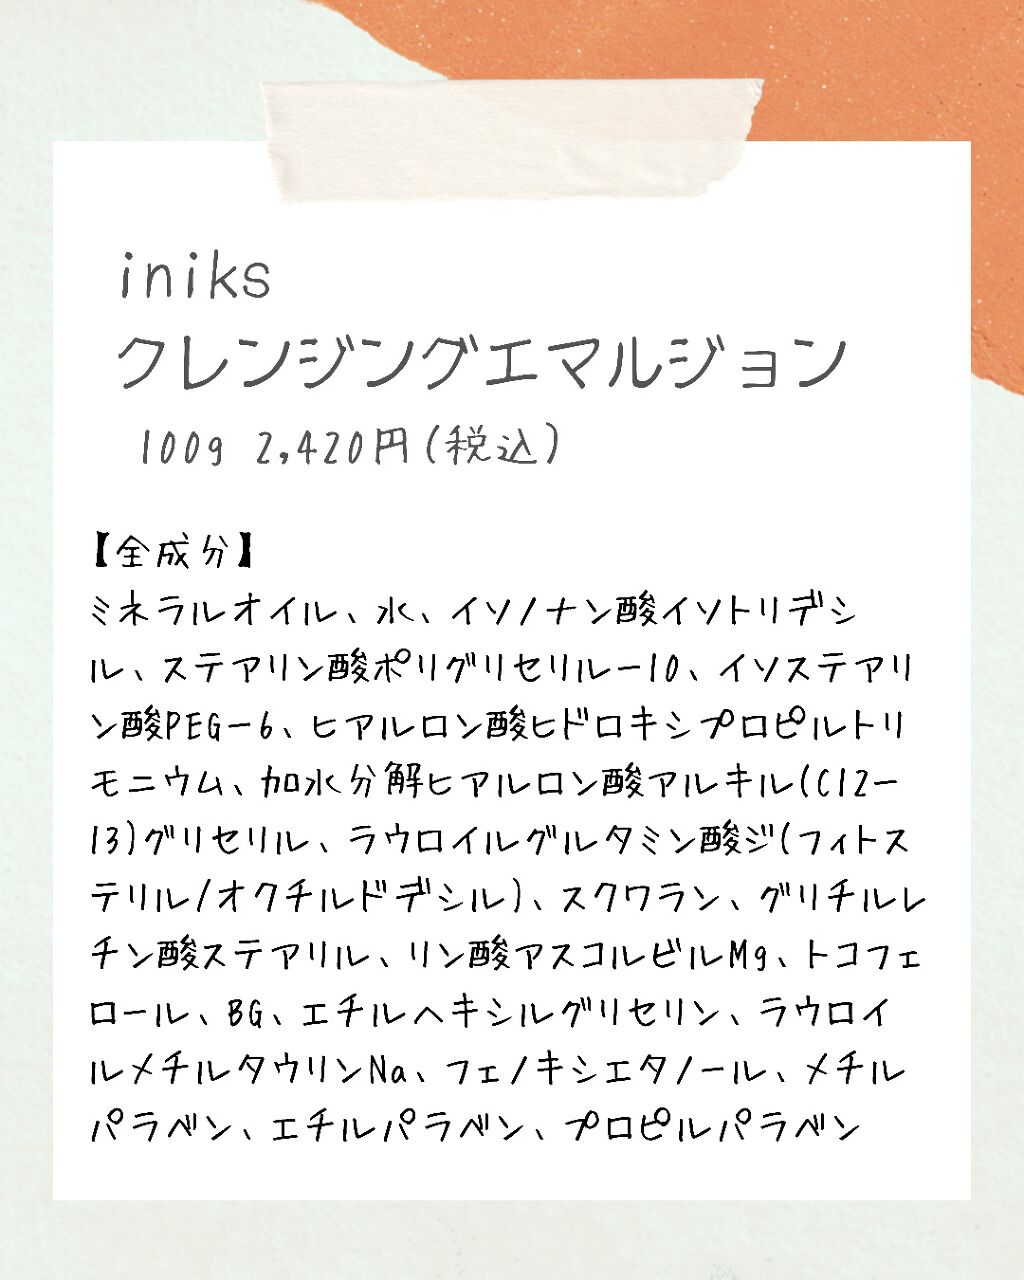 iniks
クレンジングエマルジョン
100g 2,420円(税込)
【全成分】
ミネラルオイル、水、イソノナン酸イソトリデシ
ル、ステアリン酸ポリグリセリルー10、イソステアリ
ン酸PEGー6、ヒアルロン酸ヒドロキシプロピルトリ
モニウム、加水分解ヒアルロン酸アルキル(C12ー
13)グリセリル、ラウロイルグルタミン酸ジ(フィトス
テリル/オクチルドデシル)、スクワラン、グリチルレ
チン酸ステアリル、リン酸アスコルビルMg、トコフェ
ロール、BG、エチルヘキシルグリセリン、ラウロイ
ルメチルタウリンNa、フェノキシエタノール、メチル
パラベン、エチルパラベン、プロピルパラベン